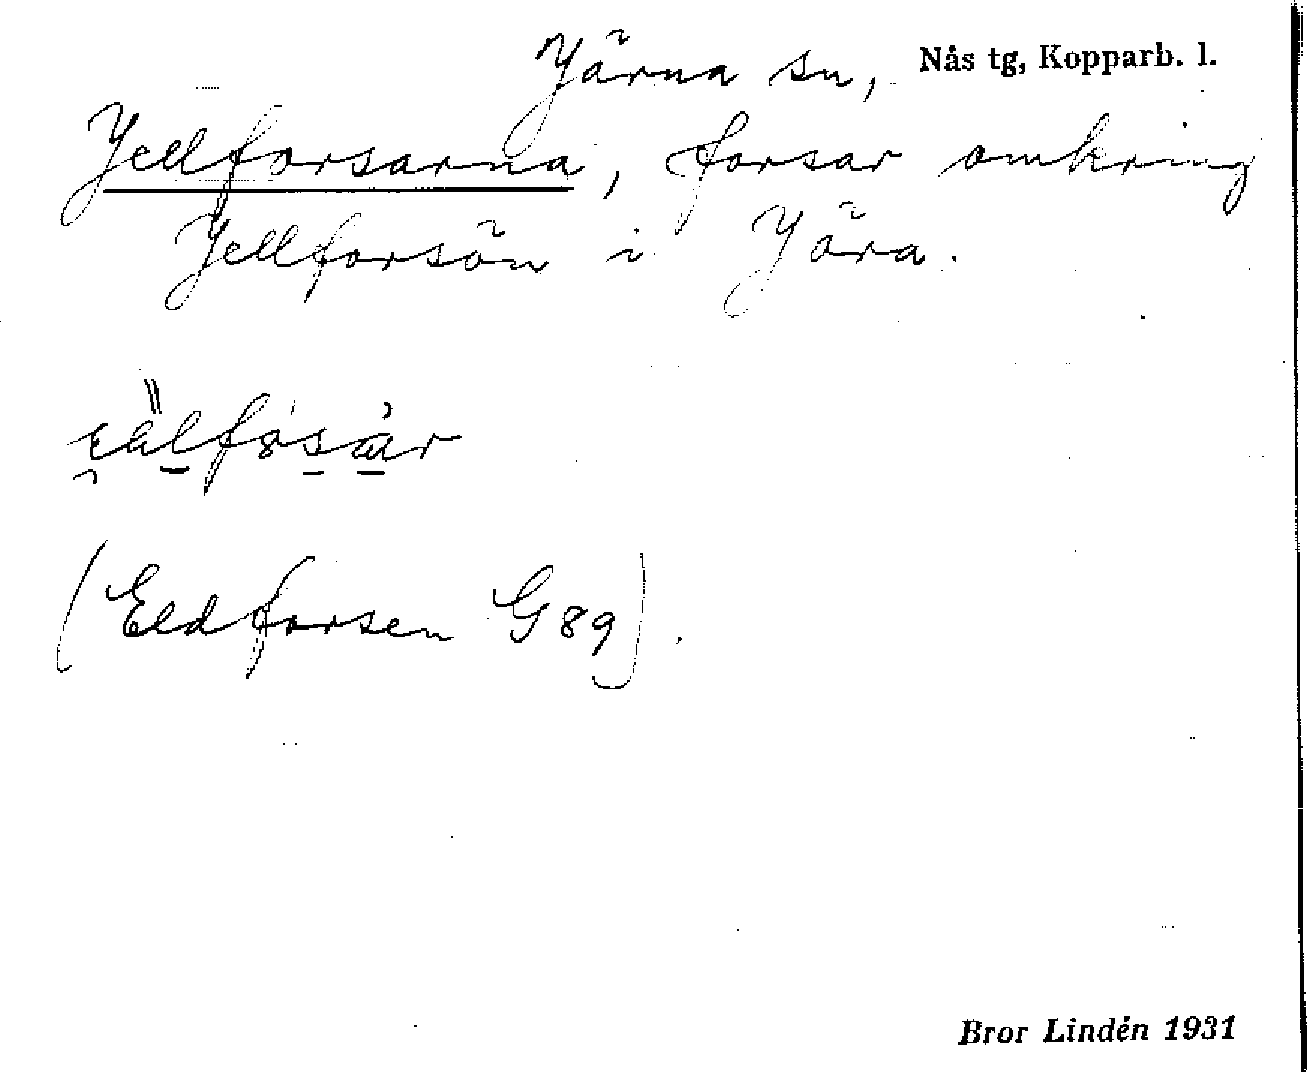 Järna sn, Nås tg, Kopparb. l.
Jellforsarna, forsar omkring
Jellforsön i Jära.
(Eldforsen G89).
Bror Lindén 1931